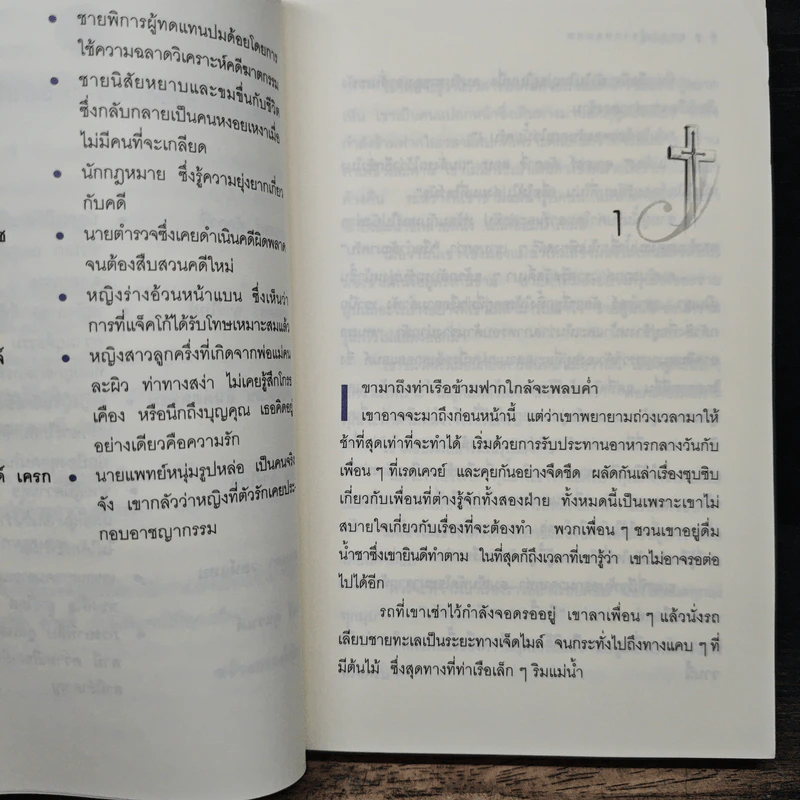 ชายพิการผู้ทดแทนปมด้อยโดยการ
ใช้ความฉลาดวิเคราะห์คดีฆาตกรรม
ชายนิสัยหยาบและขมขื่นกับชีวิต
ซึ่งกลับกลายเป็นคนหงอยเหงาเมื่อ
ไม่มีคนที่จะเกลียด
นักกฎหมาย ซึ่งรู้ความยุ่งยากเกี่ยว
กับคดี
นายตำรวจซึ่งเคยดำเนินคดีผิดพลาด
จนต้องสืบสวนคดีใหม่
หญิงร่างอ้วนหน้าแบน ซึ่งเห็นว่า
การที่แจ็คโก้ได้รับโทษเหมาะสมแล้ว
หญิงสาวลูกครึ่งที่เกิดจากพ่อแม่คน
ละผิว ท่าทางสง่า ไม่เคยรู้สึกโกรธ
เคือง หรือนึกถึงบุญคุณ เธอคิดอยู่
อย่างเดียวคือความรัก
เครก นายแพทย์หนุ่มรูปหล่อ เป็นคนจริง
จัง เขากลัวว่าหญิงที่ตัวรักเคยประ-
กอบอาชญากรรม
1
เขามาถึงท่าเรือข้ามฟากใกล้จะพลบค่ำ
เขาอาจจะมาถึงก่อนหน้านี้ แต่ว่าเขาพยายามถ่วงเวลามาให้
ช้าที่สุดเท่าที่จะทำได้ เริ่มด้วยการรับประทานอาหารกลางวันกับ
เพื่อน ๆ ที่เรดเควย์ และคุยกันอย่างจืดชืด ผลัดกันเล่าเรื่องซุบซิบ
เกี่ยวกับเพื่อนที่ต่างรู้จักทั้งสองฝ่าย ทั้งหมดนี้เป็นเพราะเขาไม่
สบายใจเกี่ยวกับเรื่องที่จะต้องทำ พวกเพื่อน ๆ ชวนเขาอยู่ดื่ม
น้ำชาซึ่งเขายินดีทำตาม ในที่สุดก็ถึงเวลาที่เขารู้ว่า เขาไม่อาจรอต่อ
ไปได้อีก
รถที่เขาเช่าไว้กำลังจอดรออยู่ เขาลาเพื่อน ๆ แล้วนั่งรถ
เลียบชายทะเลเป็นระยะทางเจ็ดไมล์ จนกระทั่งไปถึงทางแคบ ๆ ที่
มีต้นไม้ ซึ่งสุดทางที่ท่าเรือเล็ก ๆ ริมแม่น้ำ